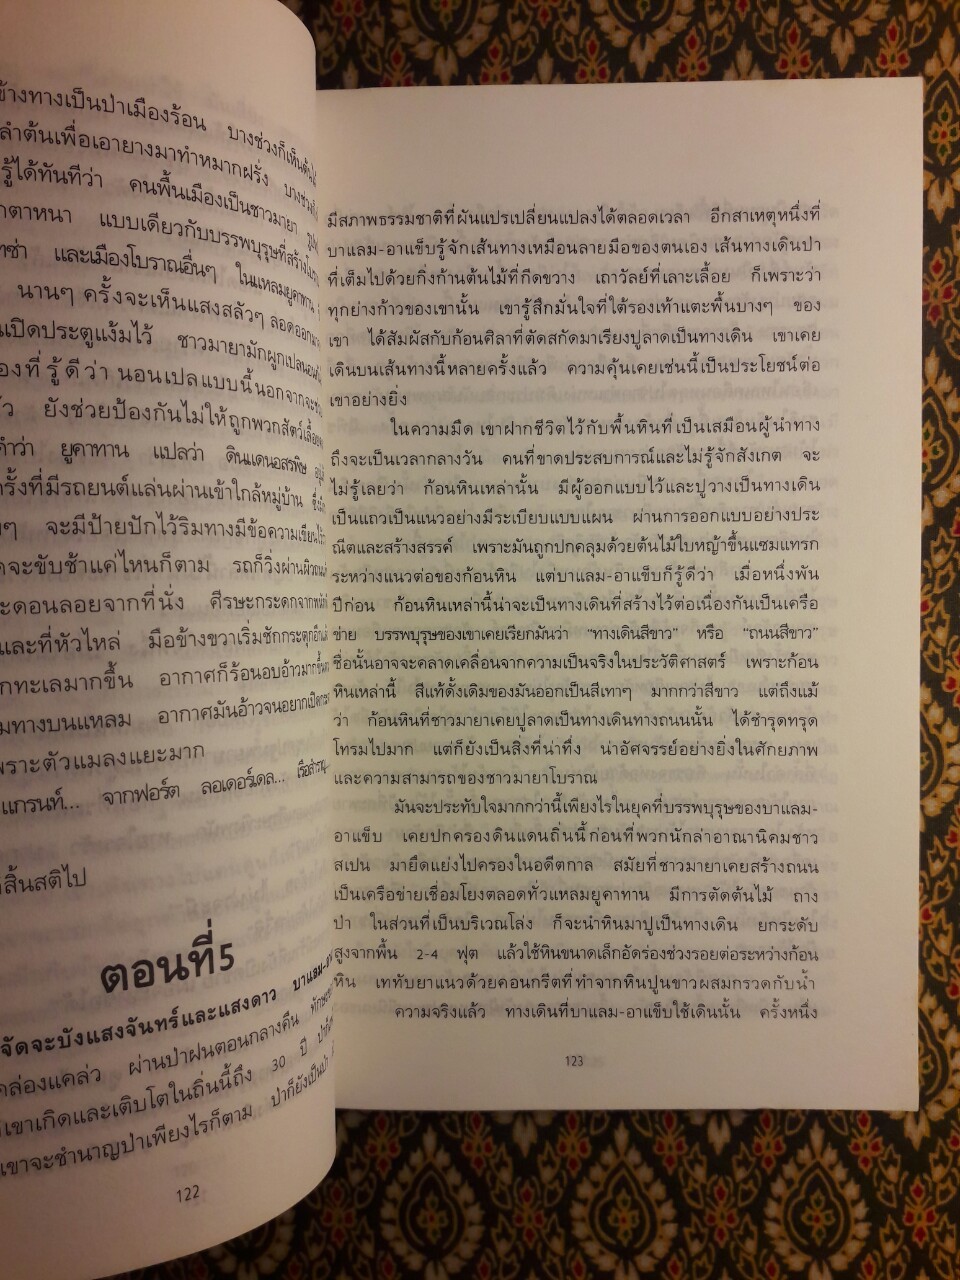 ข้างทางเป็นป่าเมืองร้อน บางช่วงก็เห็นต้น
ลำต้นเพื่อเอายางมาทำหมากฝรั่ง บางช่วง
รู้ได้ทันทีว่า คนพื้นเมืองเป็นชาวมายา
กตาหนา แบบเดียวกับบรรพบุรุษที่สร้าง
และเมืองโบราณอื่นๆ ในแหลมยูคาทาน
นานๆ ครั้งจะเห็นแสงสลัวๆ ลอดออกมา
เปิดประตูแง้มไว้ ชาวมายามักผูกเปลนอน
องที่รู้ดีว่า นอนเปลแบบนี้นอกจากจะช่วย
ยังช่วยป้องกันไม่ให้ถูกพวกสัตว์เลื้อย
คำว่า ยูคาทาน แปลว่า ดินแดนอสรพิษ
ครั้งที่มีรถยนต์แล่นผ่านเข้าใกล้หมู่บ้าน
ๆ จะมีป้ายปักไว้ริมทางมีข้อความเขียนไว้
จะขับช้าแค่ไหนก็ตาม รถก็วิ่งผ่าน
ะดอนลอยจากที่นั่ง ศีรษะกระดกจาก
และที่หัวไหล่ มือข้างขวาเริ่มชักกระตุก
กทะเลมากขึ้น อากาศก็ร้อนอบอ้าวมากขึ้น
มทางบนแหลม อากาศมันอ้าวจนอยากเปิด
พราะตัวแมลงแยะมาก
แกรนท์... จากฟอร์ต ลอเดอร์เดล...
สิ้นสติไป
ตอนที่5
จัดจะบังแสงจันทร์และแสงดาว บาแลม-
คล่องแคล่ว ผ่านป่าฝนตอนกลางคืน
เขาเกิดและเติบโตในถิ่นนี้ถึง 30 ปี
เขาจะชำนาญป่าเพียงไรก็ตาม ป่าก็ยังเป็นป่า
122
มีสภาพธรรมชาติที่ผันแปรเปลี่ยนแปลงได้ตลอดเวลา อีกสาเหตุหนึ่งที่
บาแลม-อาแข็บรู้จักเส้นทางเหมือนลายมือของตนเอง เส้นทางเดินป่า
ที่เต็มไปด้วยกิ่งก้านต้นไม้ที่กีดขวาง เถาวัลย์ที่เลาะเลื้อย ก็เพราะว่า
ทุกย่างก้าวของเขานั้น เขารู้สึกมั่นใจที่ใต้รองเท้าแตะพื้นบางๆ ของ
เขา ได้สัมผัสกับก้อนศิลาที่ตัดสกัดมาเรียงปูลาดเป็นทางเดิน เขาเคย
เดินบนเส้นทางนี้หลายครั้งแล้ว ความคุ้นเคยเช่นนี้เป็นประโยชน์ต่อ
เขาอย่างยิ่ง
ในความมืด เขาฝากชีวิตไว้กับพื้นหินที่เป็นเสมือนผู้นำทาง
ถึงจะเป็นเวลากลางวัน คนที่ขาดประสบการณ์และไม่รู้จักสังเกต จะ
ไม่รู้เลยว่า ก้อนหินเหล่านั้น มีผู้ออกแบบไว้และปูวางเป็นทางเดิน
เป็นแถวเป็นแนวอย่างมีระเบียบแบบแผน ผ่านการออกแบบอย่างประ
ณีตและสร้างสรรค์ เพราะมันถูกปกคลุมด้วยต้นไม้ใบหญ้าขึ้นแซมแทรก
ระหว่างแนวต่อของก้อนหิน แต่บาแลม-อาแข็บก็รู้ดีว่า เมื่อหนึ่งพัน
ปีก่อน ก้อนหินเหล่านี้น่าจะเป็นทางเดินที่สร้างไว้ต่อเนื่องกันเป็นเครือ
ข่าย บรรพบุรุษของเขาเคยเรียกมันว่า "ทางเดินสีขาว" หรือ "ถนนสีขาว"
ชื่อนั้นอาจจะคลาดเคลื่อนจากความเป็นจริงในประวัติศาสตร์ เพราะก้อน
หินเหล่านี้ สีแท้ดั้งเดิมของมันออกเป็นสีเทาๆ มากกว่าสีขาว แต่ถึงแม้
ว่า ก้อนหินที่ชาวมายาเคยปูลาดเป็นทางเดินทางถนนนั้น ได้ชำรุดทรุด
โทรมไปมาก แต่ก็ยังเป็นสิ่งที่น่าทึ่ง น่าอัศจรรย์อย่างยิ่งในศักยภาพ
และความสามารถของชาวมายาโบราณ
มันจะประทับใจมากกว่านี้เพียงไรในยุคที่บรรพบุรุษของบาแลม-
อาแข็บ เคยปกครองดินแดนถิ่นนี้ก่อนที่พวกนักล่าอาณานิคมชาว
สเปน มายึดแย่งไปครองในอดีตกาล สมัยที่ชาวมายาเคยสร้างถนน
เป็นเครือข่ายเชื่อมโยงตลอดทั่วแหลมยูคาทาน มีการตัดต้นไม้ ถาง
ป่า ในส่วนที่เป็นบริเวณโล่ง ก็จะนำหินมาปูเป็นทางเดิน ยกระดับ
สูงจากพื้น 2-4 ฟุต แล้วใช้หินขนาดเล็กอัดร่องช่วงรอยต่อระหว่างก้อน
หิน เททับยาแนวด้วยคอนกรีตที่ทำจากหินปูนขาวผสมกรวดกับน้ำ
ความจริงแล้ว ทางเดินที่บาแลม-อาแข็บใช้เดินนั้น ครั้งหนึ่ง
123